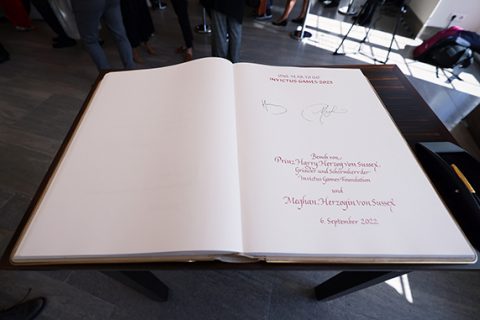 ONE YEAR TO GO
INVICTUS GAMES 2023
Besuch von
Prinz Harry, Herzog von Sussex,
Gründer und Schirmherr der
Invictus Games Foundation
und
Meghan, Herzogin von Sussex
6. September 2022